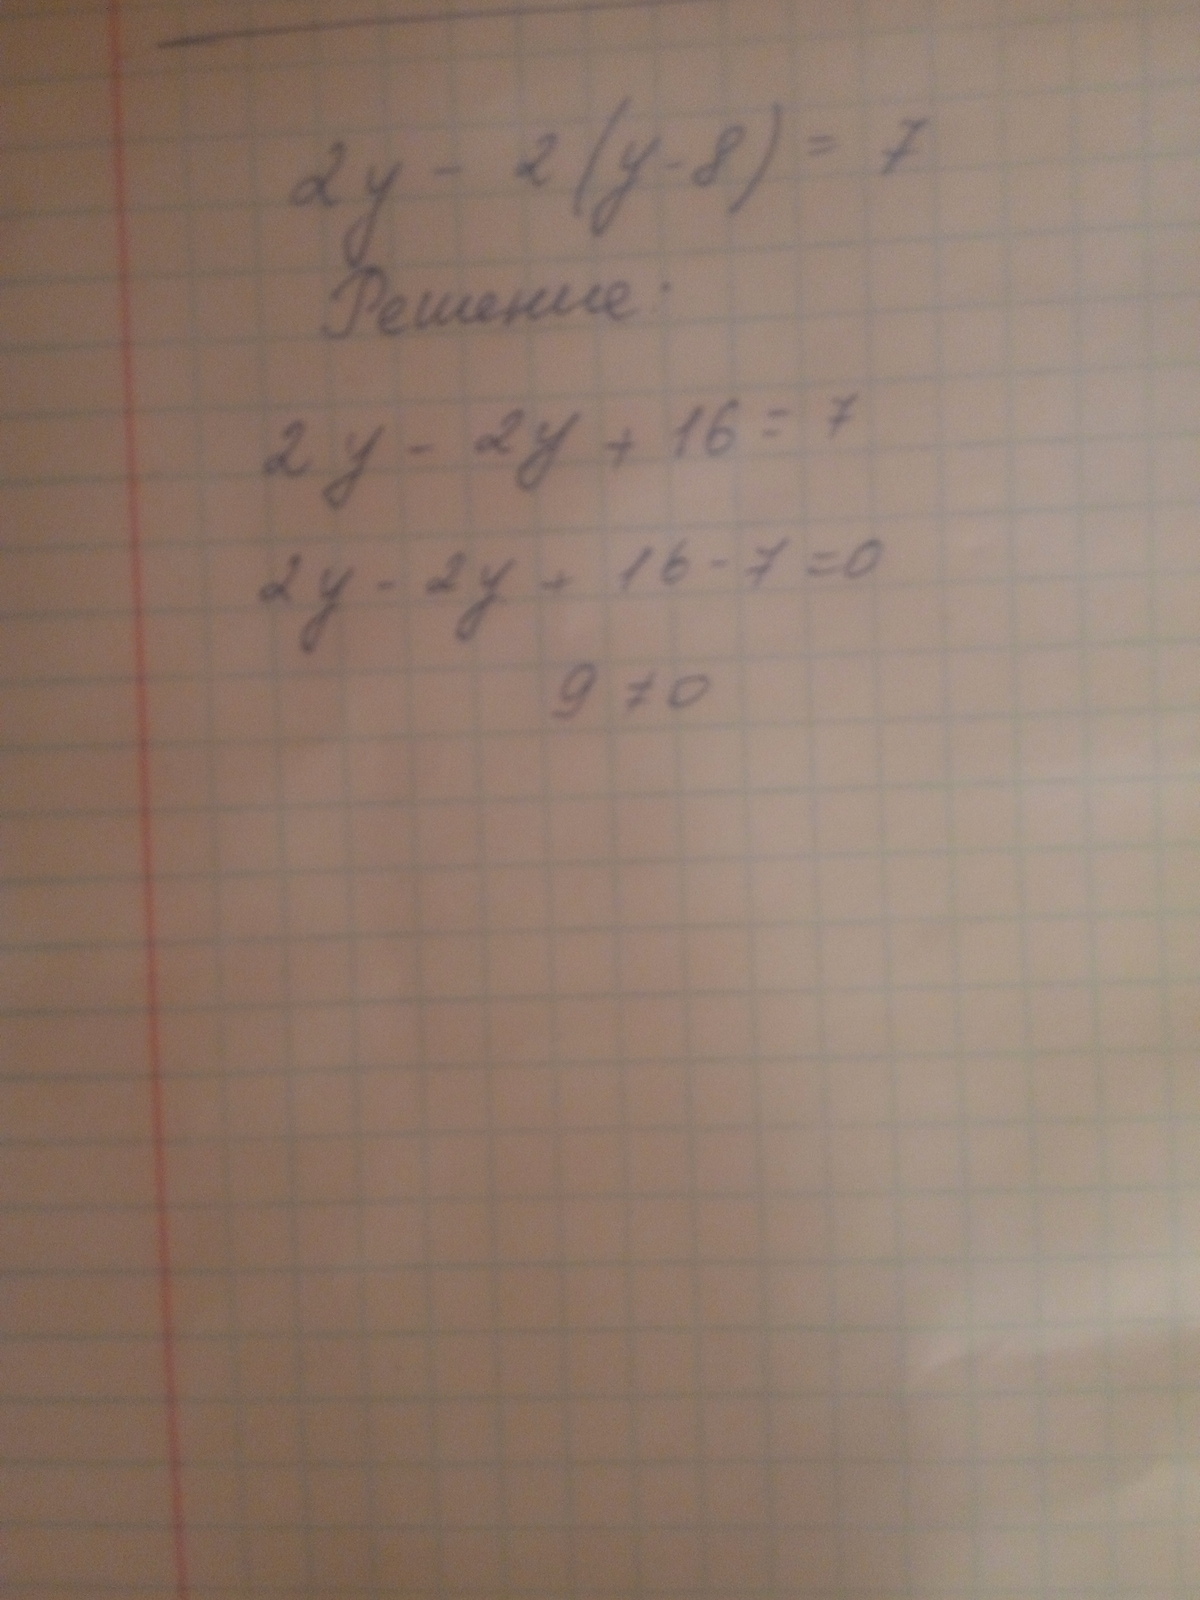 2y - 2(y-8) = 7
Решение:
2y - 2y + 16 = 7
2y - 2y + 16 - 7 = 0
9 ≠ 0